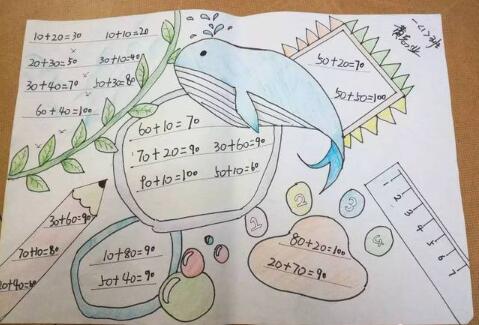 10+20=30 10+10=20
20+30=50 30+10=40
30+40=70 50+30=80
60+40=100
50+20=70
50+50=100
60+10=70
70+20=90 30+60=90
90+10=100 50+10=60
30+60=90
70+10=80
20+40=60
10+80=90
50+40=90
80+20=100
20+70=90
1 2 3 4
1
2
3
4
5
6
7